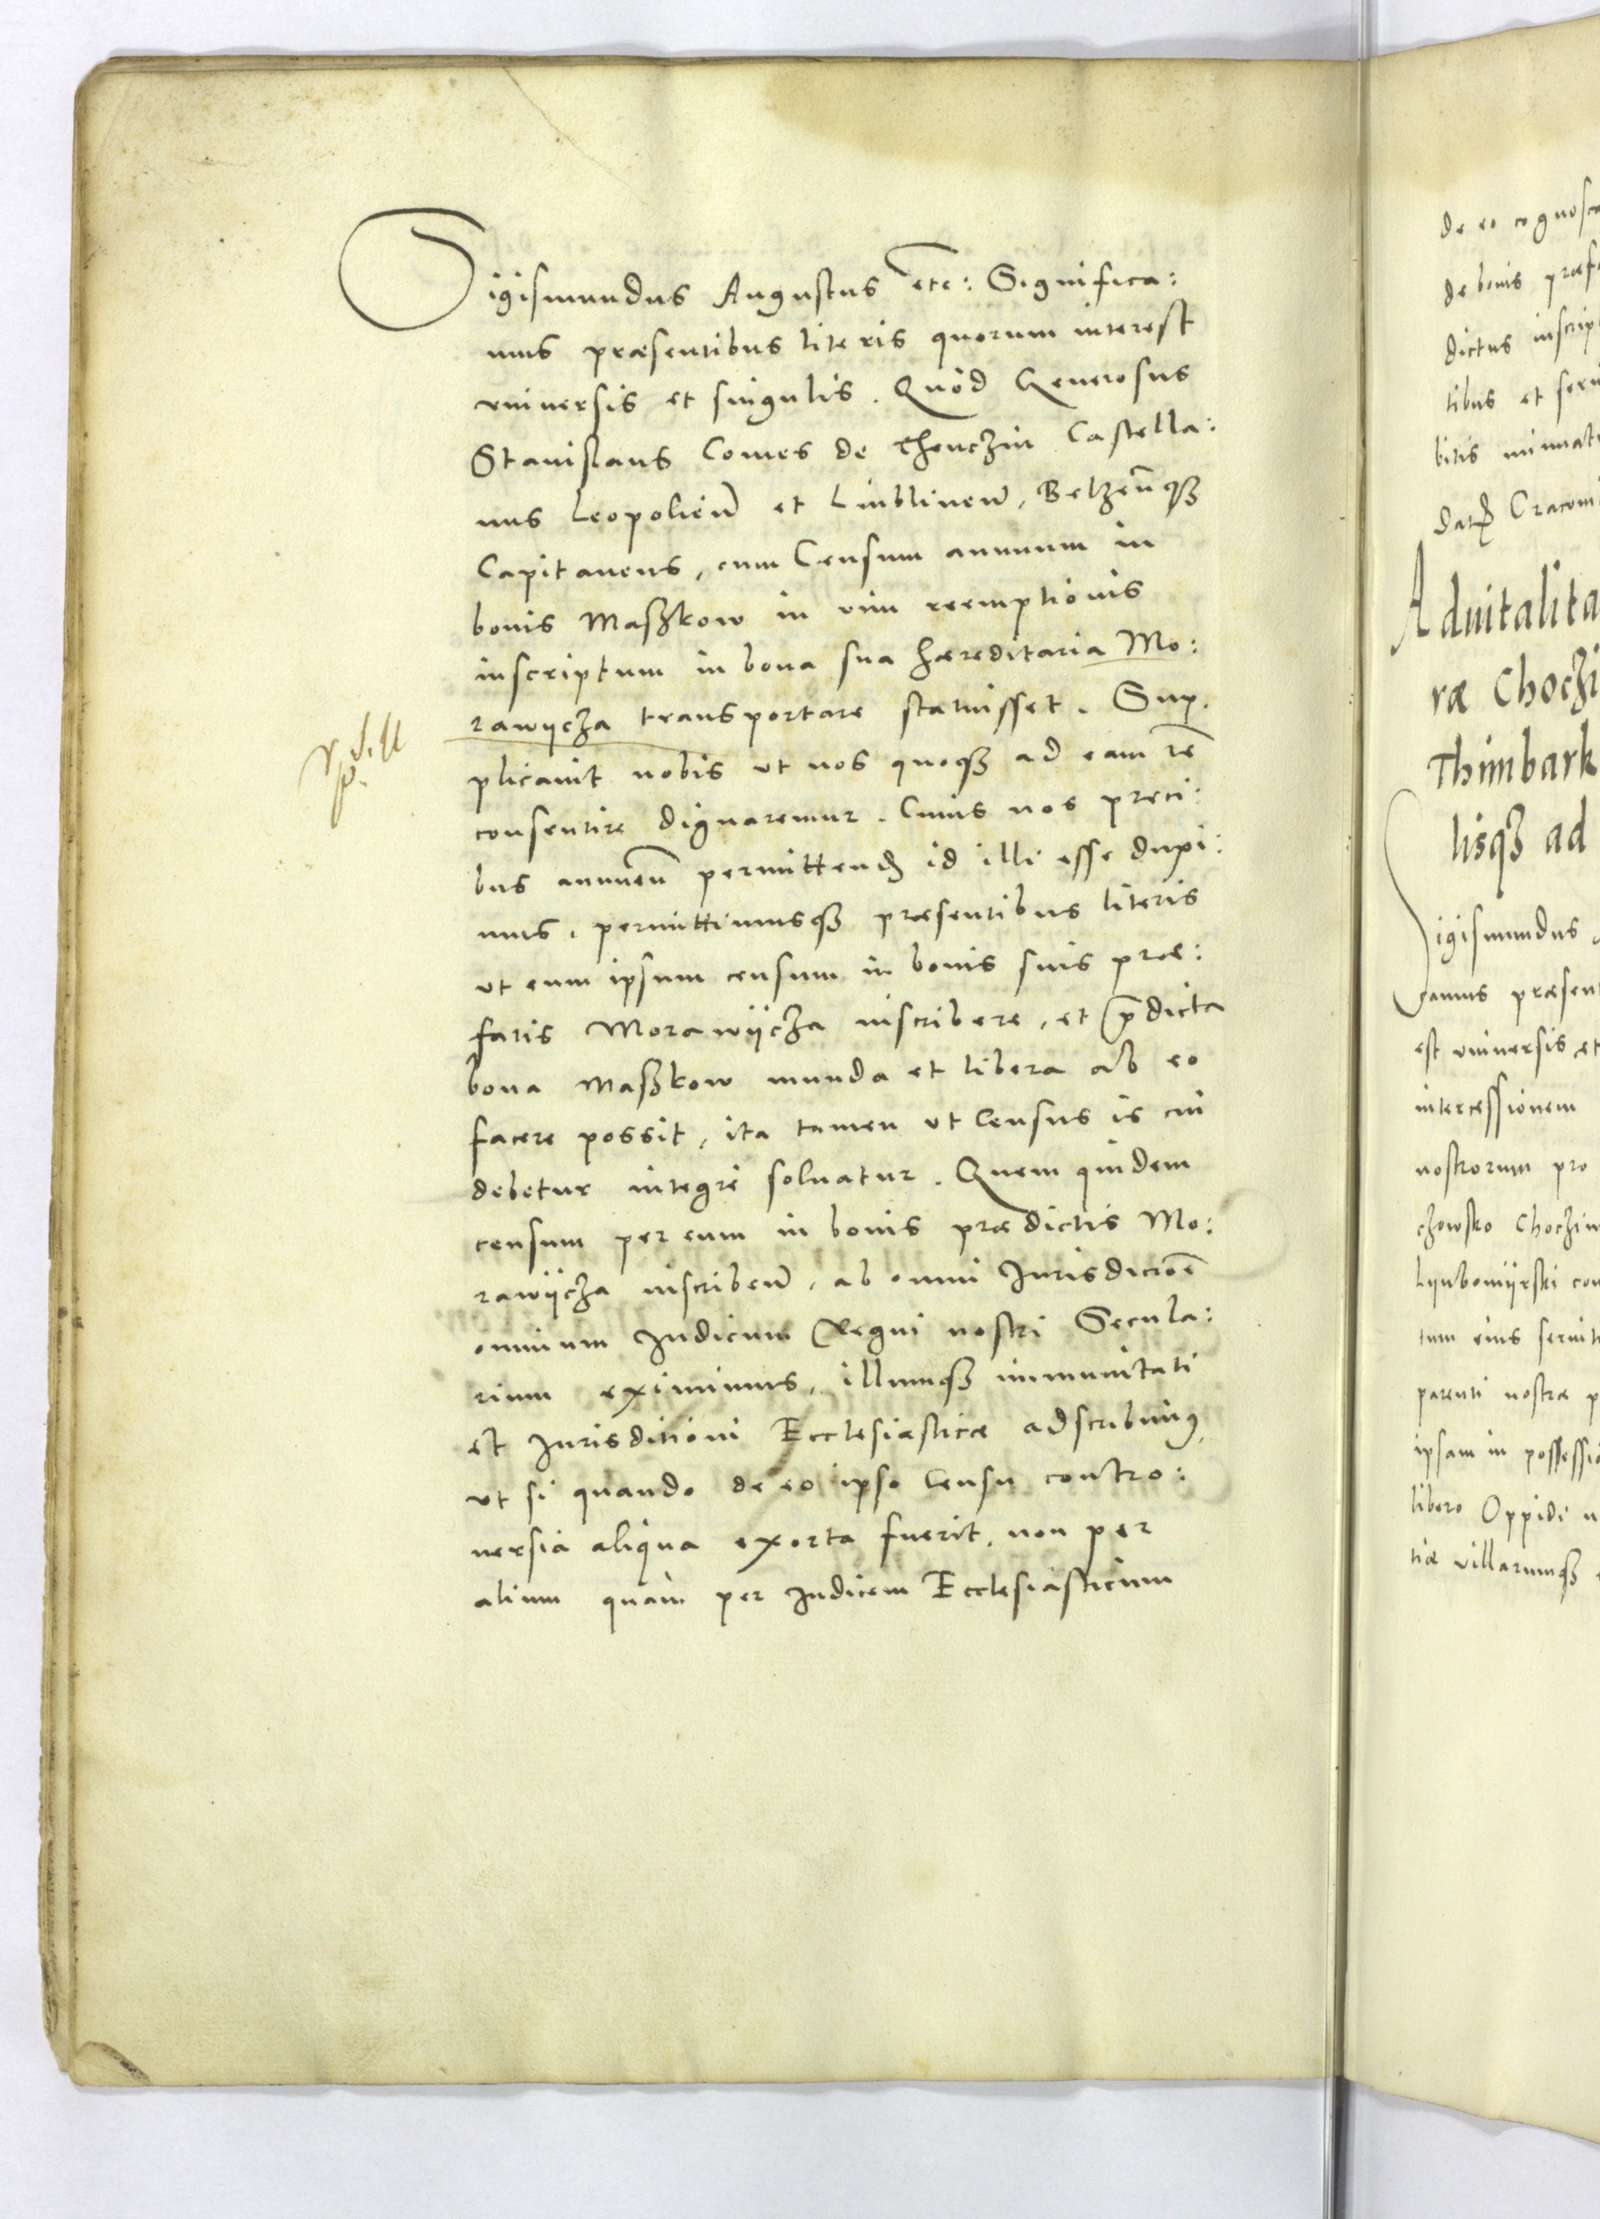 Sigismundus Augustus etc: Significa:
mus præsentibus literis quorum interest
vniuersis et singulis. Quòd Generosus
Stanislaus Comes de Thenczin Castella:
nus Leopolien̄ et Lublinen̄, Belzen̄qꝫ
Capitaneus, eum Censum annuum in
bonis Maszkow in vim reemptionis
inscriptum in bona sua hæreditaria Mo:
rawijcza transportare statuisset. Sup.
plicauit nobis vt nos quoqꝫ ad eam rē
consentire dignaremur. Cuius nos preci:
bus annuen̄ permittend̄ id illi esse duxi:
mus, permittimusqꝫ præsentibus literis
vt eum ipsum censum in bonis suis præ:
fatis Morawijcza inscribere, et p̄dicta
bona Maszkow munda et libera ab eo
facere possit, ita tamen vt Census is cui
debetur integrè soluatur. Quem quidem
censum per eum in bonis prædictis Mo:
rawijcza inscriben̄, ab omni Jurisdictiōe
omnium Judicum Regni nostri Secula:
rium eximimus, illumqꝫ immunitati
et Jurisditioni Ecclesiasticæ adscribimꝰ,
vt si quando de eo ipso Censu contro:
uersia aliqua exorta fuerit, non per
alium quàm per Judicem Ecclesiasticum
de eo cognosca
de bonis præf
dictus inscrip
tibus et seru
bitis
Dat̄ Cracoui
Aduitalita
ræ Choczi
Thimbark
lisqꝫ ad
Sigismundus
camus præsent
est vniuersis et
intercessionem
nostrorum pro
chowsko Choczim
Lijubomijrski con
tum eius seruit
parenti nostræ p
ipsam in possessio
libero Oppidi n
tiæ villarumqꝫ